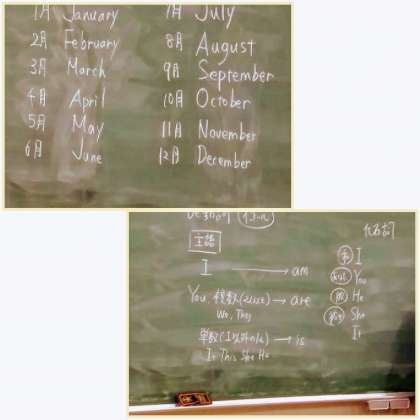 1月 January
2月 February
3月 March
4月 April
5月 May
6月 June
7月 July
8月 August
9月 September
10月 October
11月 November
12月 December
be動詞
主語
I → am
You, 複数(2つ以上) → are
We, They
単数(I以外の) → is
It This She He
代名詞
I
You
He
She
It